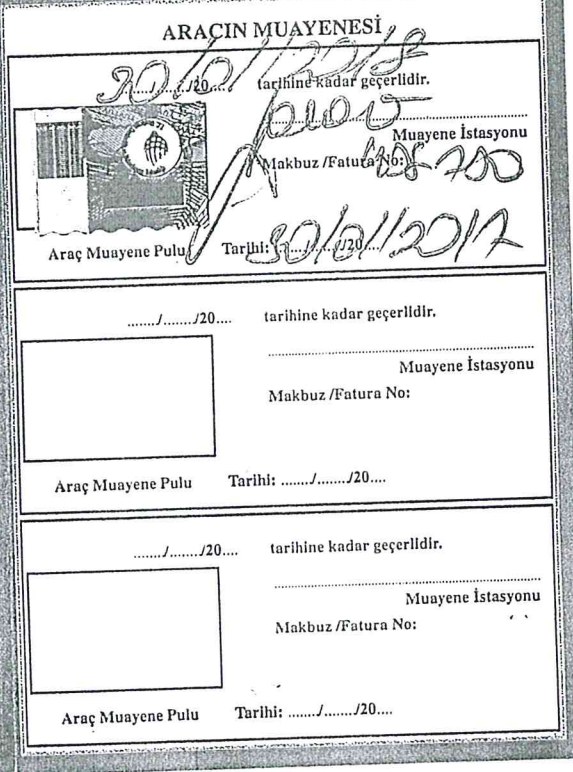 ARACIN MUAYENESİ
30/01/2018 tarihine kadar geçerlidir.
Muayene İstasyonu
Makbuz /Fatura No:
Araç Muayene Pulu Tarihi: 30/01/2017
......./......./20.... tarihine kadar geçerlidir.
Muayene İstasyonu
Makbuz /Fatura No:
Araç Muayene Pulu Tarihi: ......./......./20....
......./......./20.... tarihine kadar geçerlidir.
Muayene İstasyonu
Makbuz /Fatura No:
Araç Muayene Pulu Tarihi: ......./......./20....